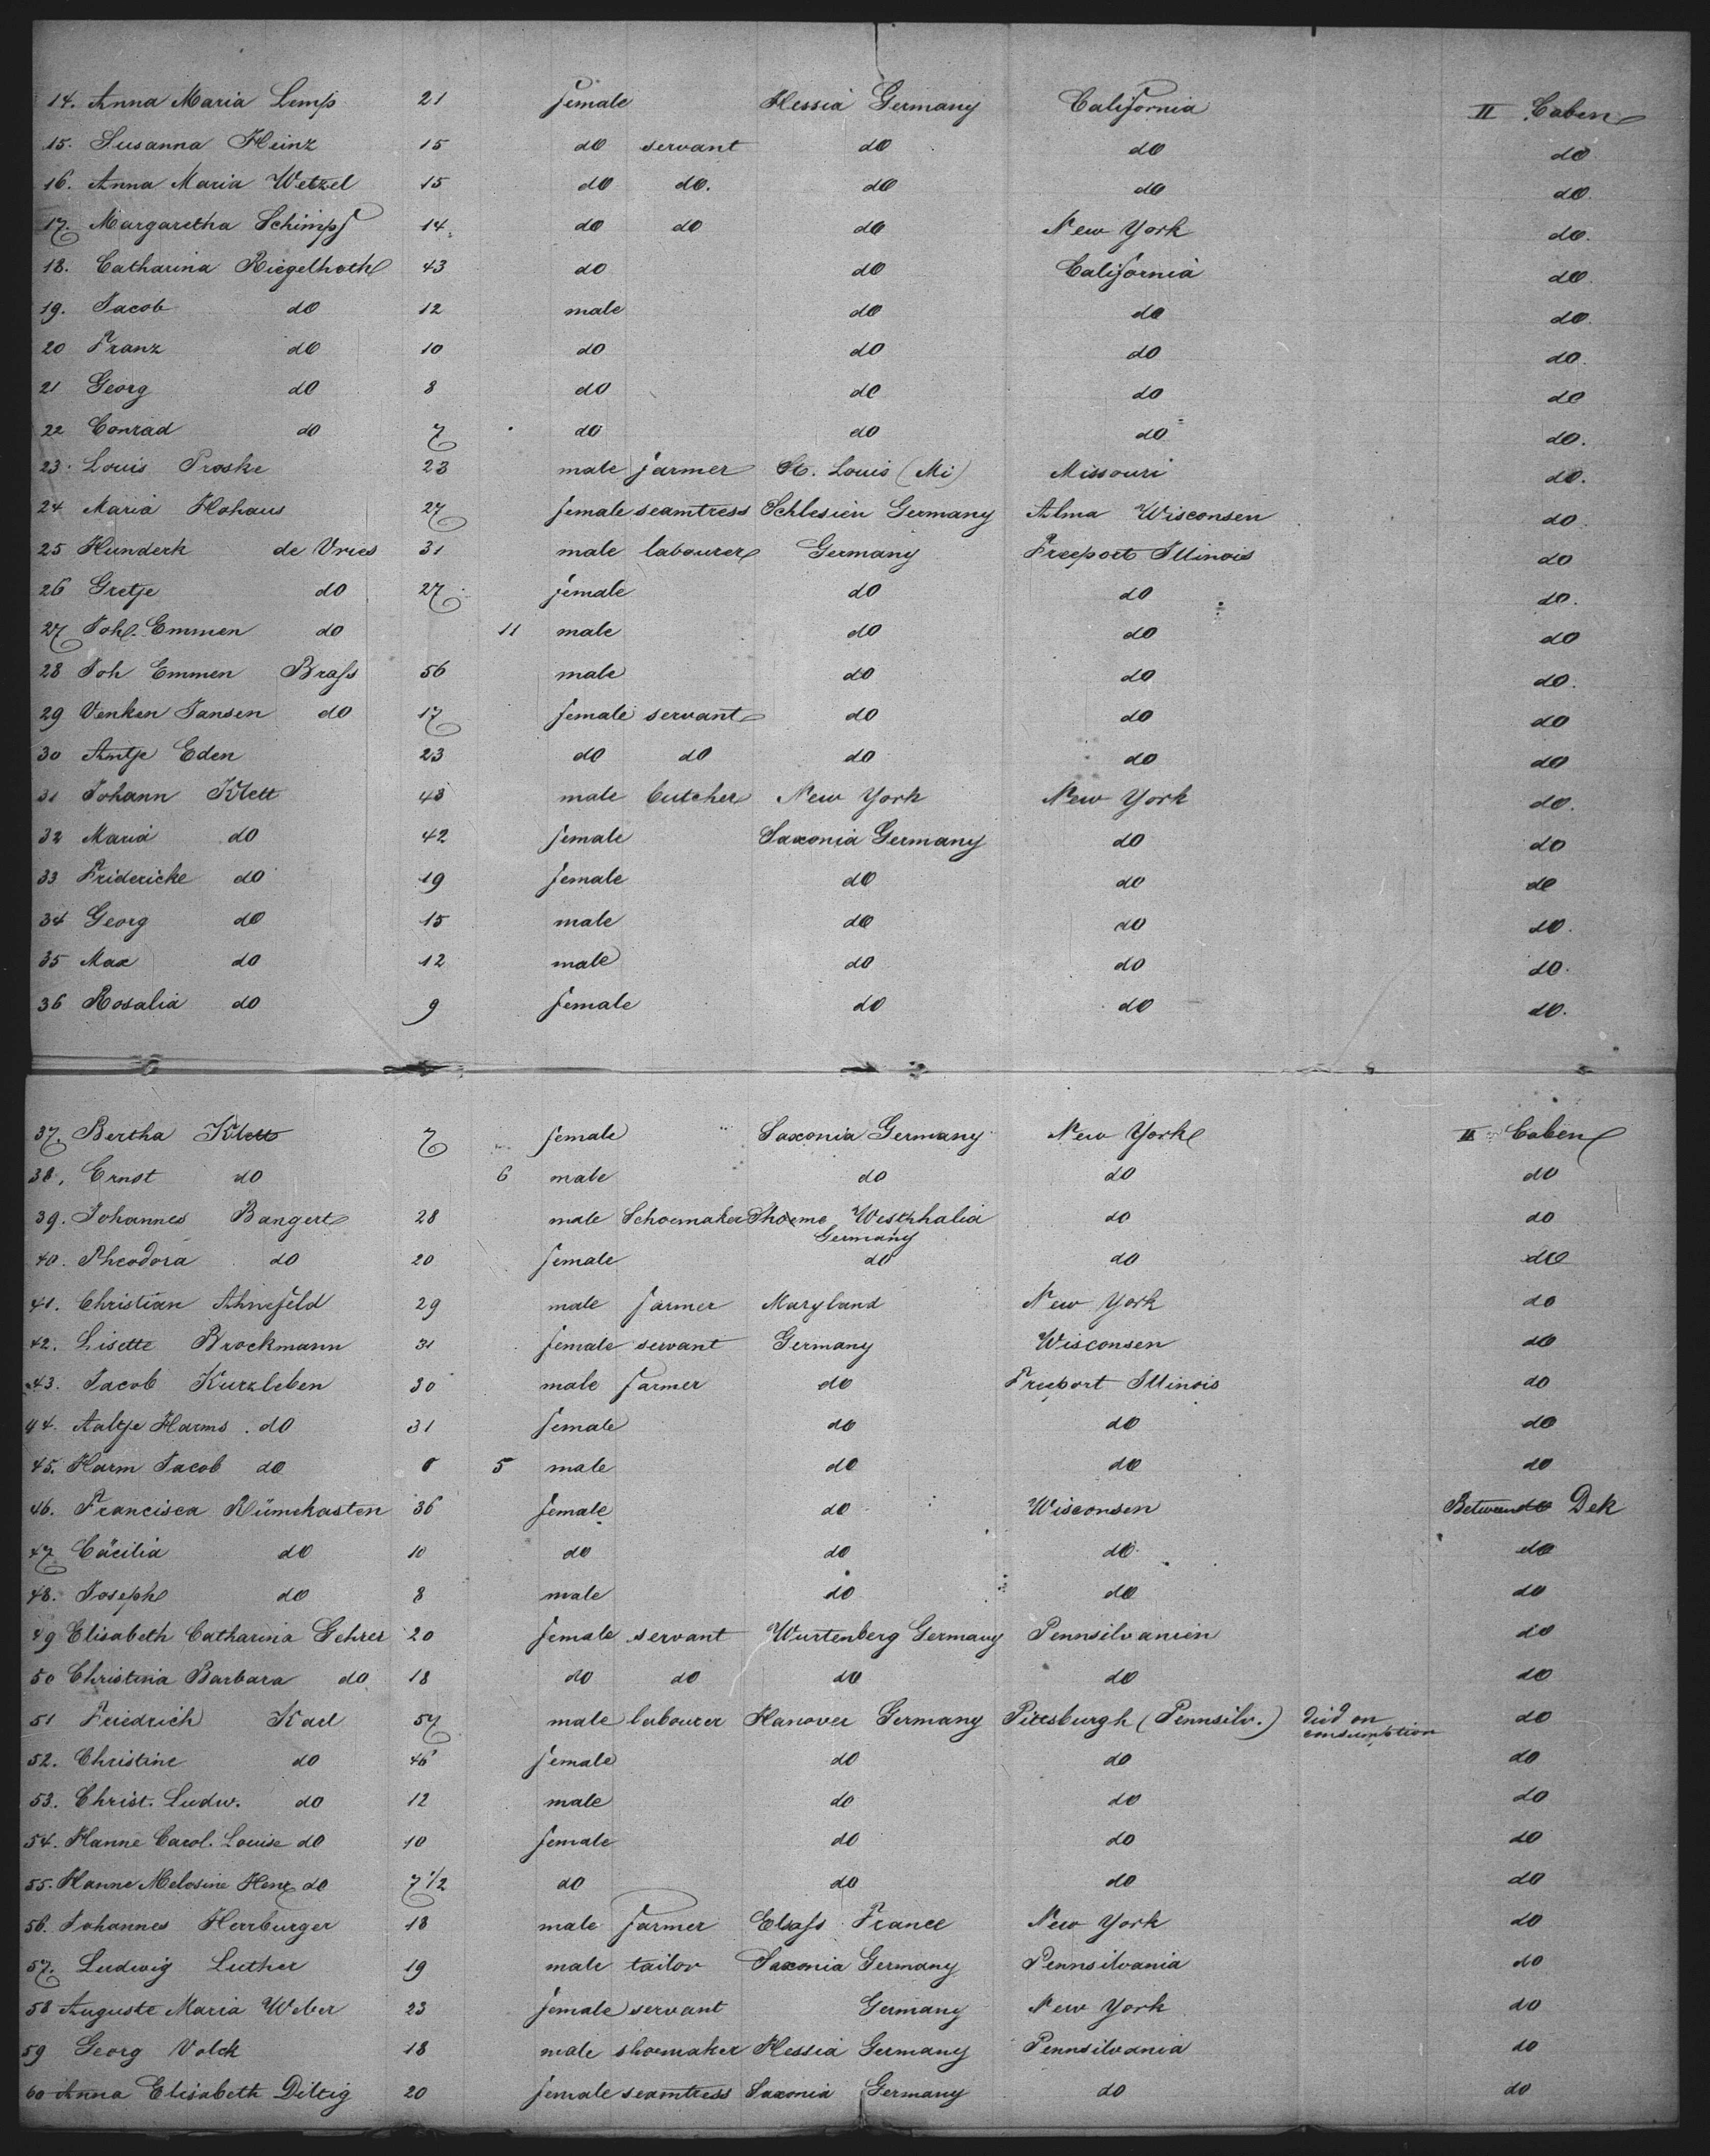 14. Anna Maria Lemp 21 female Hessia Germany California II Caben
15. Susanna Heinz 15 do servant do do do
16. Anna Maria Wetzel 15 do do. do do do.
17. Margaretha Schimpf 14 do do do New York do.
18. Catharina Riegelhoth 43 do do California do.
19. Jacob do 12 male do do do.
20 Franz do 10 do do do do.
21 Georg do 8 do do do do
22 Conrad do 7 do do do do.
23. Louis Proske 23 male farmer St. Louis (Mi) Missouri do.
24 Maria Hohaus 27 female seamtress Schlesien Germany Alma Wisconsen do
25 Hunderk de Vries 31 male labourer Germany Freeport Illinois do
26 Gretje do 27 female do do do.
27 Joh. Emmen do 11 male do do do
28 Joh Emmen Brass 56 male do do do.
29 Venken Jansen do 17 female servant do do do
30 Antje Eden 23 do do do do do
31 Johann Klett 48 male butcher New York New York do.
32 Maria do 42 female Saxonia Germany do do
33 Fridericke do 19 female do do do
34 Georg do 15 male do do do.
35 Max do 12 male do do do.
36 Rosalia do 9 female do do do.
37. Bertha Klett 7 female Saxonia Germany New York II Caben
38. Ernst do 6 male do do do
39. Johannes Bangert 28 male Schoemaker Westphalia do do
Germany
40. Theodora do 20 female do do do
41. Christian Ahnefeld 29 male farmer Maryland New York do
42. Lisette Brockmann 31 female servant Germany Wisconsen do
43. Jacob Kurzleben 30 male farmer do Freeport Illinois do
44. Aaltje Harms do 31 female do do do
45. Harm Jacob do 0 5 male do do do
46. Francisca Rümekasten 36 female do Wisconsen Between Dek
47 Cäcilia do 10 do do do do
48. Joseph do 8 male do do do
49 Elisabeth Catharina Gehrer 20 female servant Wurtenberg Germany Pennsilvanien do
50 Christina Barbara do 18 do do do do do
51 Friedrich Karl 57 male labourer Hanover Germany Pittsburgh (Pennsilv.) died on do
consumbtion
52. Christine do 46 female do do do
53. Christ. Ludw. do 12 male do do do
54. Hanne Carol. Louise do 10 female do do do
55. Hanne Melosine Henr do 7 1/2 do do do do
56. Johannes Herrburger 18 male farmer Elsass France New York do
57. Ludwig Luther 19 male tailor Saxonia Germany Pennsilvania do
58 Auguste Maria Weber 23 female servant Germany New York do
59 Georg Volck 18 male shoemaker Hessia Germany Pennsilvania do
60 Anna Elisabeth Dittig 20 female seamtress Saxonia Germany do do